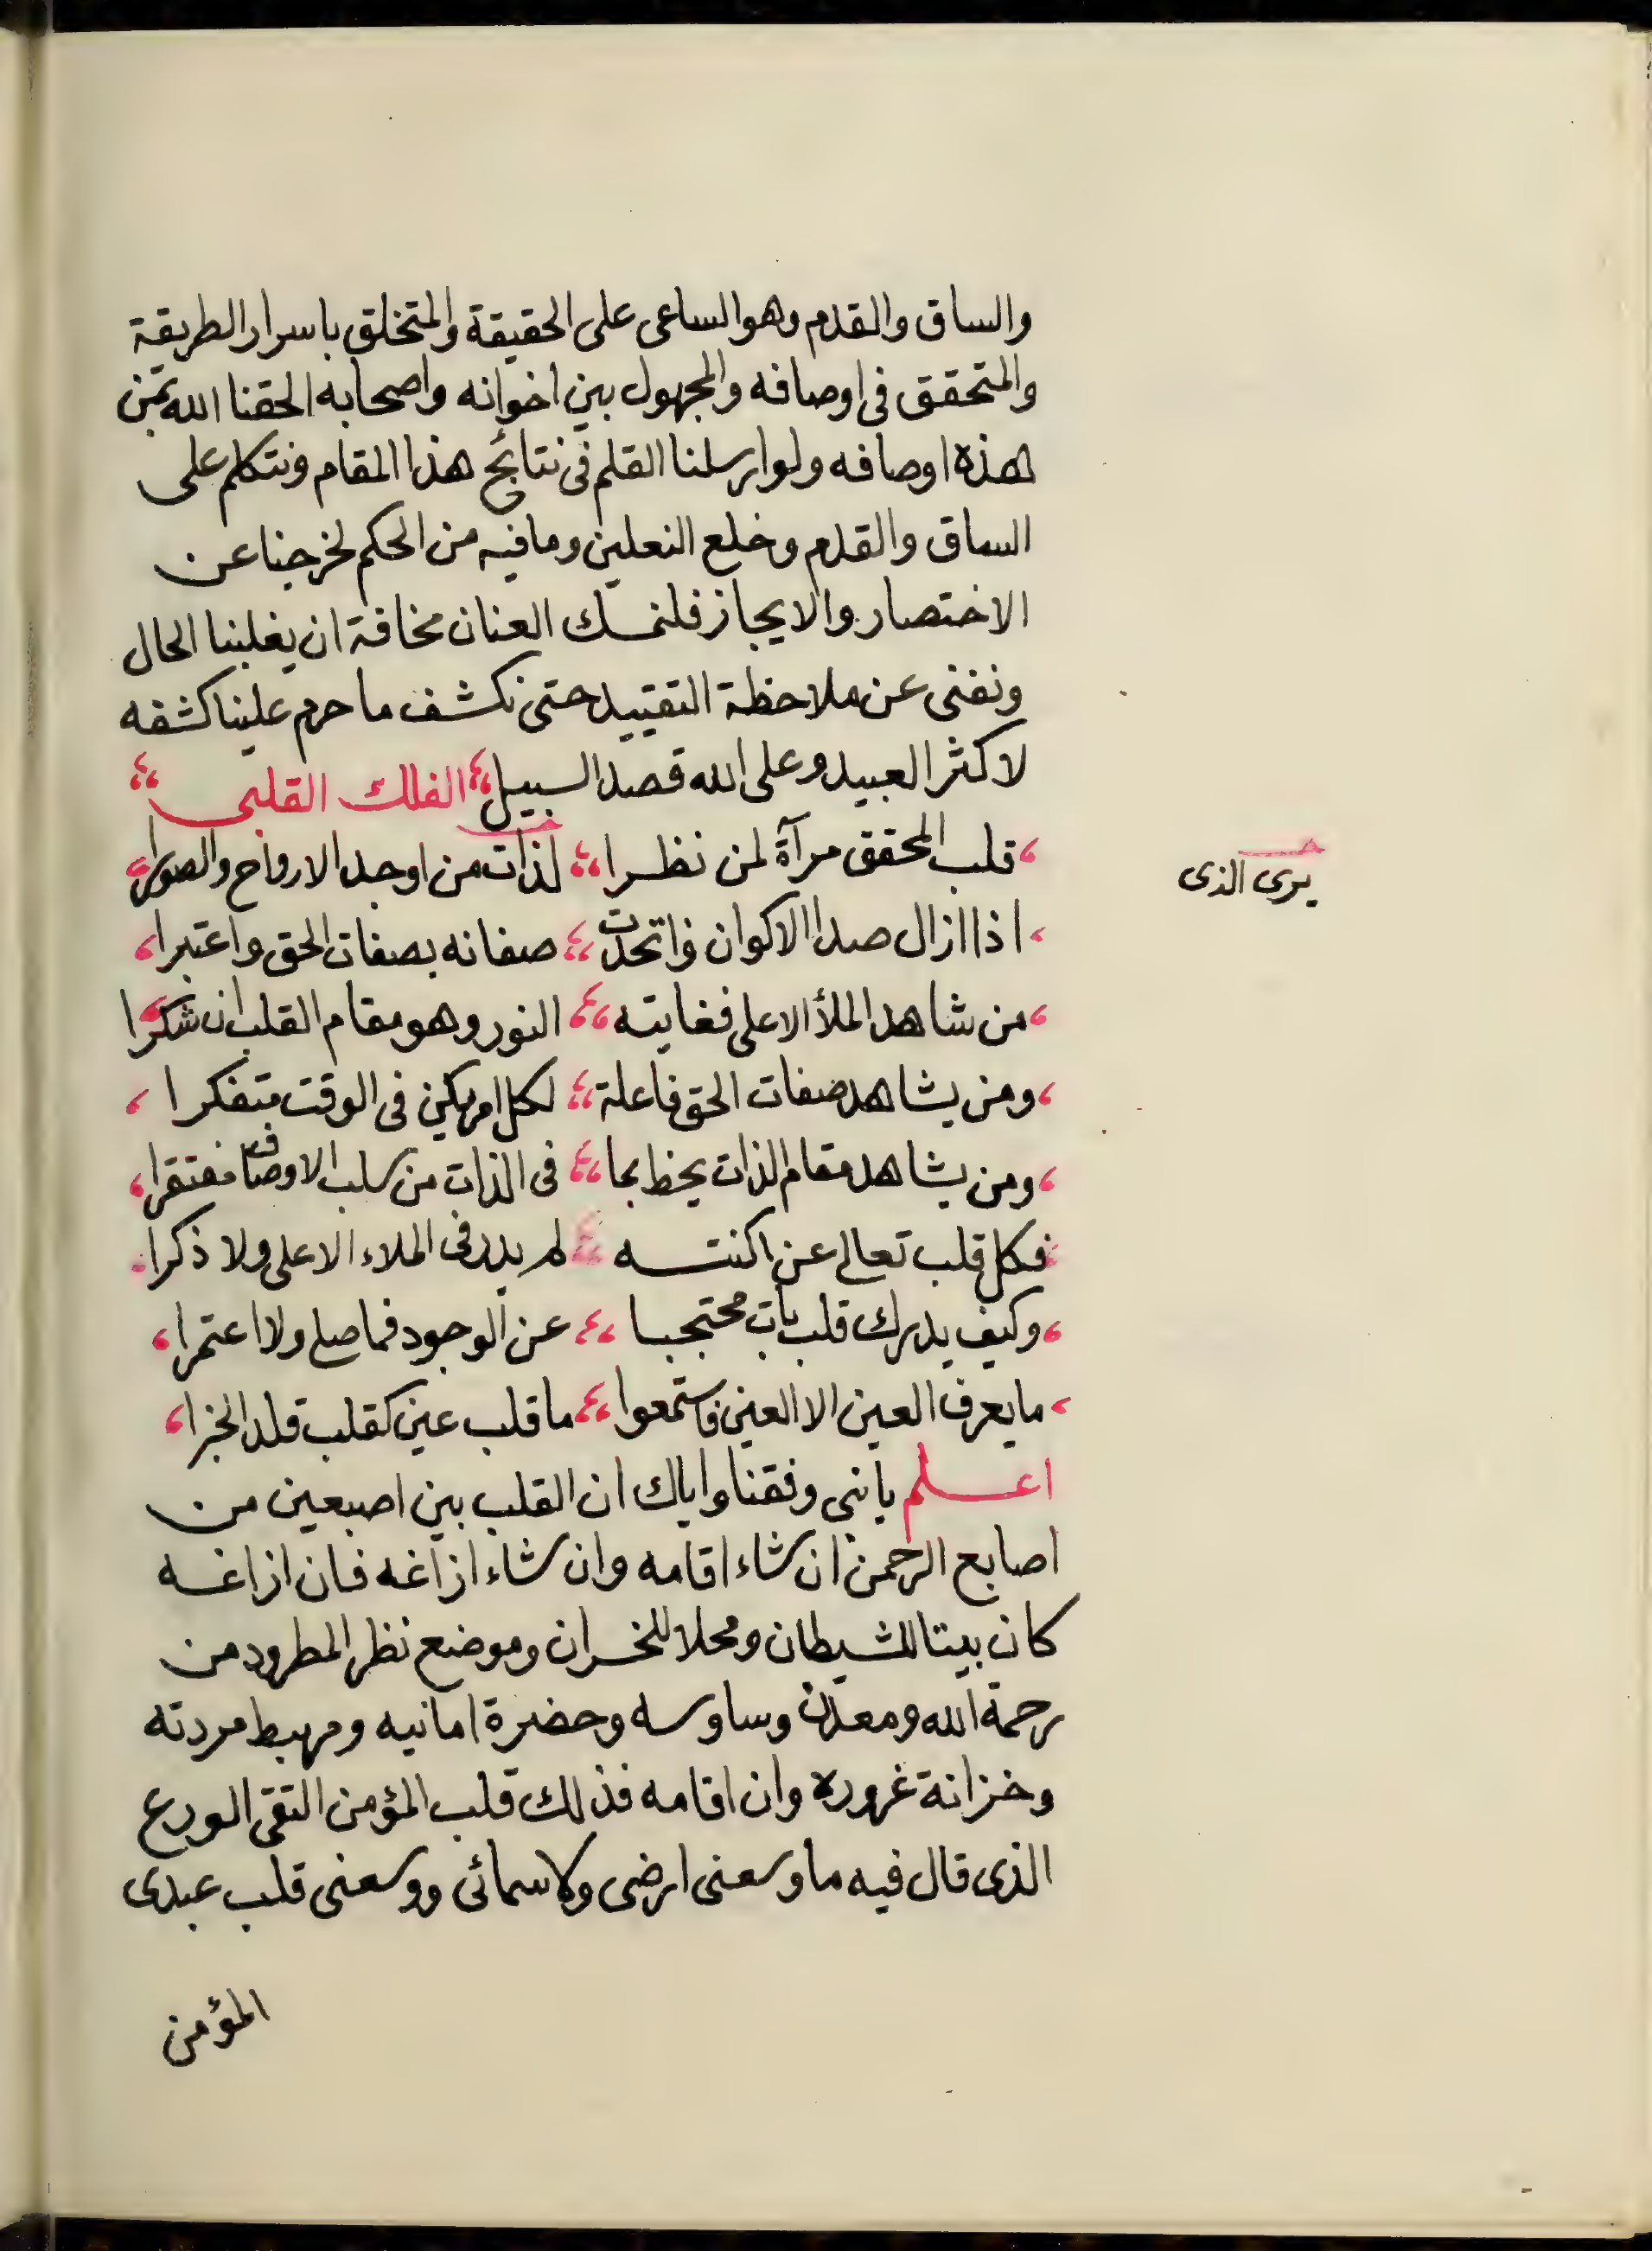 والساق والقدم وهو الساعى على الحقيقة والمتخلق باسرار الطريقة
والمتحقق فى اوصافه والمجهول بين اخوانه واصحابه الحقنا الله بمن
هذه اوصافه ولو ارسلنا القلم فى نتائج هذا المقام ونتكلم على
الساق والقدم وخلع النعلين وما فيه من الحكم لخرجنا عن
الاختصار والايجاز فلنمسك العنان مخافة ان يغلبنا الحال
ونفنى عن ملاحظة التقييد حتى نكشف ما حرم علينا كشفه
لاكثر العبيد وعلى الله قصد السبيل الفلك القلبى
قلب المحقق مرآة لمن نظرا لذات من اوجد الارواح والصورا
يرى الذى
اذا ازال صدا الاكوان فاتحدت صفاته بصفات الحق واعتبرا
من شاهد الملأ الاعلى فغايته النور وهو مقام القلب ان شكرا
ومن يشاهد صفات الحق فاعلة لكل امر يكن فى الوقت متفكرا
ومن يشاهد مقام الذات يحظ بها فى الذات من سلب الاوصاف مفتقرا
فكل قلب تعالى عن اكنته لم يدر فى الملاء الاعلى ولا ذكرا
وكيف يدرك قلب بات محتجبا عن الوجود فما صلى ولا اعتمرا
ما يعرف العين الا العين فاستمعوا ما قلب عين كقلب قلد الخبرا
اعلم يا بنى وفقنا واياك ان القلب بين اصبعين من
اصابع الرحمن ان شاء اقامه وان شاء ازاغه فان ازاغه
كان بيتا للشيطان ومحلا للخسران وموضع نظر المطرود من
رحمة الله ومعدن وساوسه وحضرة امانيه ومهبط مردته
وخزانة غروره وان اقامه فذلك قلب المؤمن التقى الورع
الذى قال فيه ما وسعنى ارضى ولا سمائى ووسعنى قلب عبدى
المؤمن